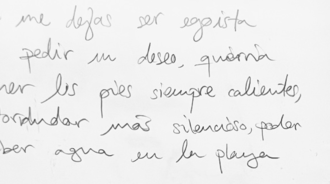 me dejas ser egoista
pedir un deseo, querría
ner los pies siempre calientes,
más silencioso, poder
ber agua en la playa